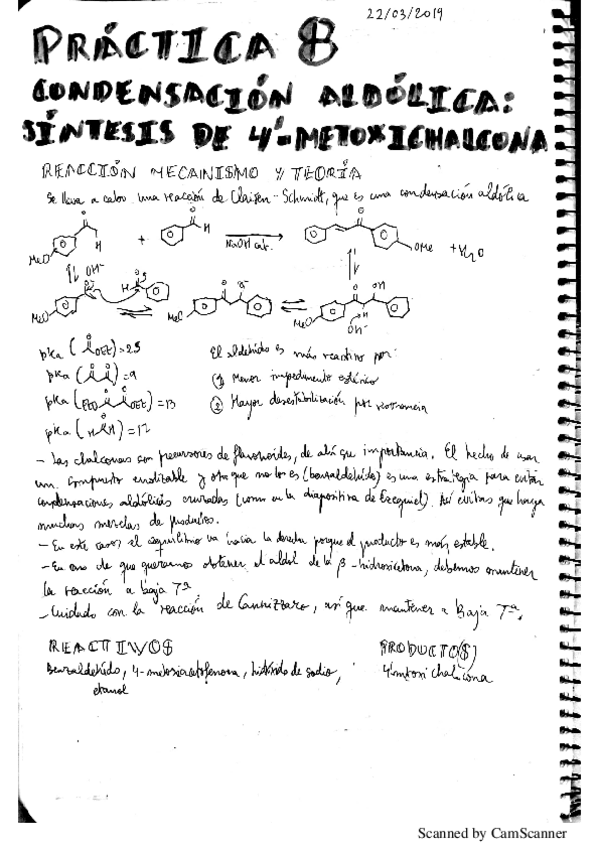 22/03/2019
PRÁCTICA 8
CONDENSACIÓN ALDÓLICA:
SÍNTESIS DE 4'-METOXICHALCONA
REACCIÓN MECANISMO Y TEORÍA
Se lleva a cabo una reacción de Claisen-Schmidt, que es una condensación aldólica
O O O
H + H NaOH cat. OMe + H2O
MeO
OH⁻
MeO MeO MeO OH
OH⁻
pKa ( OEt) = 25
pKa ( ) = 9
pKa (EtO OEt) = 13
pKa (H H) = 17
El aldehído es más reactivo por:
① Menor impedimento estérico
② Mayor desestabilización por resonancia
- Las chalconas son precursores de flavonoides, de ahí que importancia. El hecho de usar
un compuesto enolizable y otro que no lo es (benzaldehído) es una estrategia para evitar
condensaciones aldólicas cruzadas (como en la diapositiva de Ezequiel). Así evitas que haya
muchas mezclas de productos.
- En este caso el equilibrio va hacia la derecha porque el producto es más estable.
- En caso de que queramos obtener el aldol de la β-hidroxicetona, debemos mantener
la reacción a baja Tª
- Cuidado con la reacción de Cannizzaro, así que mantener a Baja Tª.
REACTIVOS
Benzaldehído, 4-metoxiacetofenona, hidróxido de sodio,
etanol
PRODUCTO(S)
4'metoxichalcona
Scanned by CamScanner